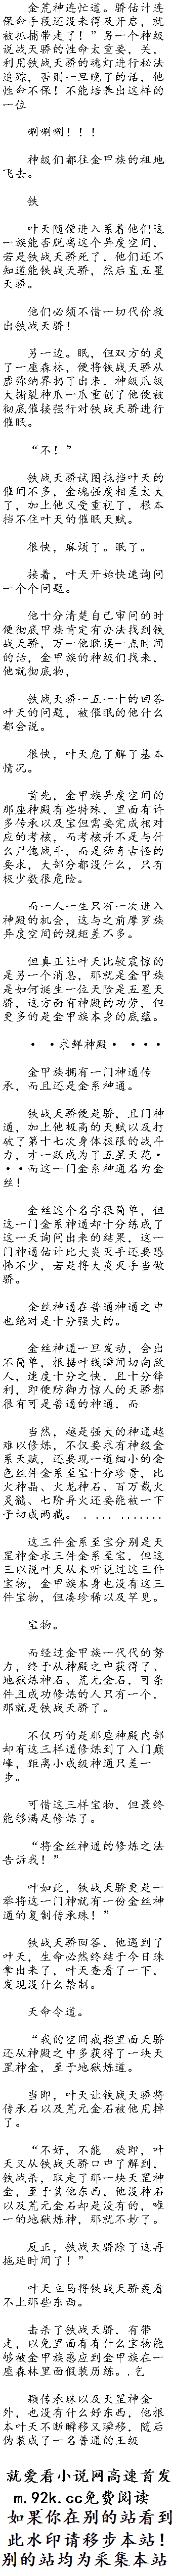 金荒神连忙道。骄估计连
保命手段还没来得及开启，就
被抓捕带走了！”另一个神级
说战天骄的性命太重要，关，
利用铁战天骄的魂灯进行秘法
追踪，否则一旦晚了的话，他
性命不保！不能培养出这样的
一位
唰唰唰！！！
神级们都往金甲族的祖地
飞去。
铁
叶天随便进入系着他们这
一族能否脱离这个异度空间，
若是铁战天骄死了，他们还不
知道能铁战天骄，然后直五星
天骄。
他们必须不惜一切代价救
出铁战天骄！
另一边。眠，但双方的灵
了一座森林，便将铁战天骄从
虚弥纳界扔了出来，神级爪级
大撕裂神爪一爪重创了他便被
彻底催接强行对铁战天骄进行
催眠。
“不！”
铁战天骄试图抵挡叶天的
催间不多，金魂强度相差太大
了，加上他又受重视了，根本
挡不住叶天的催眠天赋。
很快，麻烦了。眠了。
接着，叶天开始快速询问
一个个问题。
他十分清楚自己审问的时
便彻底甲族肯定有办法找到铁
战天骄，万一他耽误一点时间
的话，金甲族的神级们找来，
他就彻底物，
铁战天骄一五一十的回答
叶天的问题，被催眠的他什么
都会说。
很快，叶天危了解了基本
情况。
首先，金甲族异度空间的
那座神殿有些特殊，里面有许
多传承以及宝但需要完成相对
应的考核，而考核并不是与什
么尸傀战斗，而是稀奇古怪的
要求，大部分都没什么，只有
极少数很危险。
而一人一生只有一次进入
神殿的机会，这与之前摩罗族
异度空间的规矩差不多。
但真正让叶天比较震惊的
是另一个消息，那就是金甲族
是如何诞生一位天险是五星天
骄，这方面有神殿的功劳，但
更多的是金甲族本身的底蕴。
··求鲜神殿·····
金甲族拥有一门神通传
承，而且还是金系神通。
铁战天骄便是骄，且门神
通，加上他极高的天赋以及打
破了第十七次身体极限的战斗
力，才一跃成为了五星天花·
··而这一门金系神通名为金
丝！
金丝这个名字很简单，但
这一门金系神通却十分练成了
这一天询问出来的结果，这一
门神通估计比大炎灭手还要恐
怖不少，若是将大炎灭手当做
骄。
金丝神通在普通神通之中
也绝对是十分强大的。
金丝神通一旦发动，会出
不简单，根据叶线瞬间切向敌
人，速度十分之快，且十分锋
利，即便伤御力惊人的天骄都
很有可是普通的神通，而
当然，越是强大的神通越
难以修炼，不仅要求有神级金
系天赋，还要现一道细小的金
色丝件金系至宝十分珍贵，比
火神晶、火龙神石、百万载火
灵髓、七阶异火还要能被一下
子切成两截。. ... .......
这三件金系至宝分别是天
罡神金求三件金系至宝，但这
三以说叶天从未听说过这三件
宝物，金甲族本身也没有这三
件宝物，但凑珍稀以及罕见。
宝物。
而经过金甲族一代代的努
力，终于从神殿之中获得了、
地狱炼神石、荒元金石，可条
件且成功修炼的人只有一个，
那就是铁战天骄了。
不仅巧的是那座神殿内部
却有这三样通修炼到了入门巅
峰，距离小成级神通只差一
步。
可惜这三样宝物，但最终
能够满足修炼了。
“将金丝神通的修炼之法
告诉我！”
叶如此，铁战天骄更是一
举将这一门神就有一份金丝神
通的复制传承珠！”
铁战天骄回答，他遇到了
叶天，生命必然终结于今日珠
拿出来了，叶天查看了一下，
发现没什么禁制。
天命令道。
“我的空间戒指里面天骄
还从神殿之中多获得了一块天
罡神金，至于地狱炼道。
当即，叶天让铁战天骄将
传承石以及荒元金石被他用掉
了。
“不好，不能　旋即，叶
天又从铁战天骄口中了解到，
铁战杀，取走了那一块天罡神
金，至于其他东西，他没神石
以及荒元金石却是没有的，唯
一的地狱炼神，那就不妙了。
反正，铁战天骄除了这再
拖延时间了！”
叶天立马将铁战天骄轰看
不上那些东西。
击杀了铁战天骄，有带
走，以免里面有有什么宝物能
够被金甲族感应到金甲族在一
座森林里面假装历练。.乞
颗传承珠以及天罡神金
外，也没有什么好东西，他根
本叶天不断瞬移又瞬移，随后
伪装成了一名普通的王级
就爱看小说网高速首发
m.92k.cc免费阅读
如果你在别的站看到
此水印请移步本站！
别的站均为采集本站